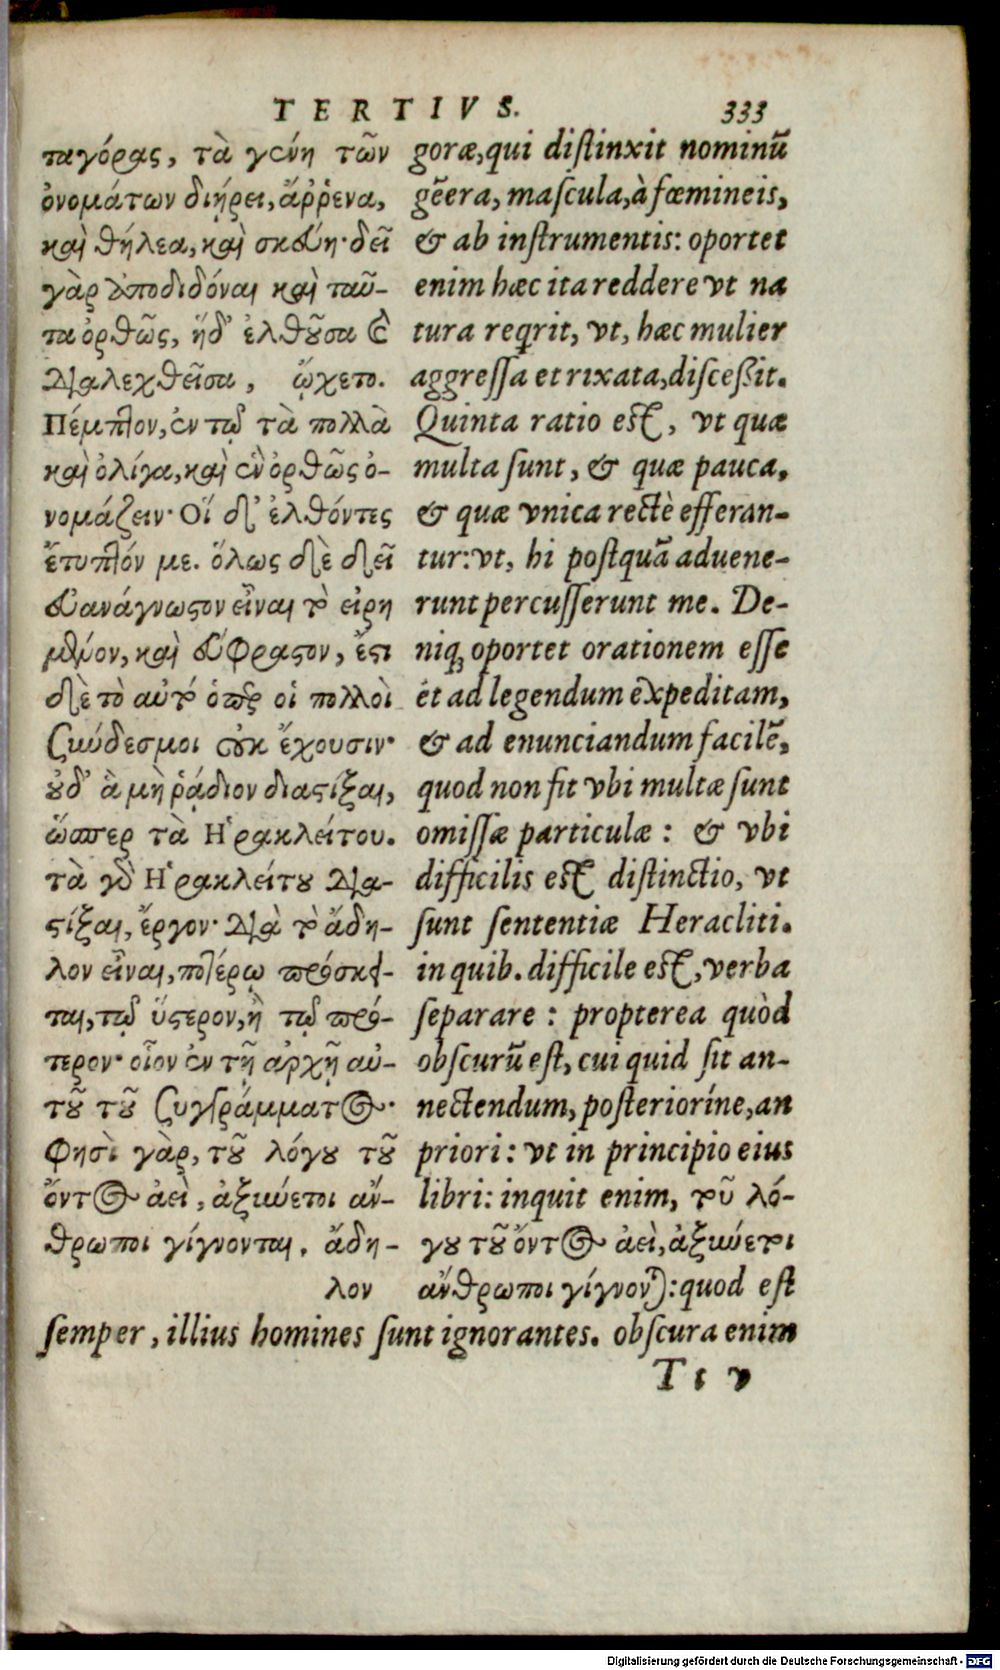 TERTIVS. 333
παγόρας, τὰ γένη τῶν
ὀνομάτων διῄρει, ἄῤῥενα,
καὶ θήλεα, καὶ σκεύη· δεῖ
γὰρ ἀποδιδόναι καὶ ταῦ-
τα ὀρθῶς, ἡ δ' ἐλθοῦσα καὶ
διαλεχθεῖσα, ᾤχετο.
Πέμπτον, ἐν τῷ τὰ πολλὰ
καὶ ὀλίγα, καὶ ἓν ὀρθῶς ὀ-
νομάζειν· Οἵ δ' ἐλθόντες
ἔτυπτόν με. ὅλως δὲ δεῖ
εὐανάγνωστον εἶναι τὸ εἰρη
μένον, καὶ εὔφραστον, ἔστι
δὲ τὸ αὐτό ὅπερ οἱ πολλοὶ
ζύνδεσμοι οὐκ ἔχουσιν·
οὐδ' ἃ μὴ ῥάδιον διαστίξαι,
ὥσπερ τὰ Ἡρακλείτου.
τὰ γὰρ Ἡρακλείτου δια-
στίξαι, ἔργον· διὰ τὸ ἄδη-
λον εἶναι, ποτέρῳ πρόσκει-
ται, τῷ ὕστερον, ἢ τῷ πρό-
τερον· οἷον ἐν τῇ ἀρχῇ αὐ-
τοῦ τοῦ ζυγγράμματος·
φησὶ γὰρ, τοῦ λόγου τοῦ
ὄντος ἀεὶ, ἀξιύετοι ἄν-
θρωποι γίγνονται. ἄδη-
λον
goræ, qui distinxit nominũ
gẽera, mascula, à fœmineis,
& ab instrumentis: oportet
enim hæc ita reddere vt na
tura reqrit, vt, hæc mulier
aggressa et rixata, discessit.
Quinta ratio est, vt quæ
multa sunt, & quæ pauca,
& quæ vnica rectè efferan-
tur: vt, hi postquã aduene-
runt percusserunt me. De-
niq; oportet orationem esse
et ad legendum expeditam,
& ad enunciandum facilẽ,
quod non fit vbi multæ sunt
omissæ particulæ: & vbi
difficilis est distinctio, vt
sunt sententiæ Heracliti.
in quib. difficile est, verba
separare: propterea quòd
obscurũ est, cui quid sit an-
nectendum, posterioríne, an
priori: vt in principio eius
libri: inquit enim, τοῦ λό-
γου τοῦ ὄντος ἀεὶ, ἀξιύετοι
ἄνθρωποι γίγνον): quod est
semper, illius homines sunt ignorantes. obscura enim
T ı v
Digitalisierung gefördert durch die Deutsche Forschungsgemeinschaft - DFG